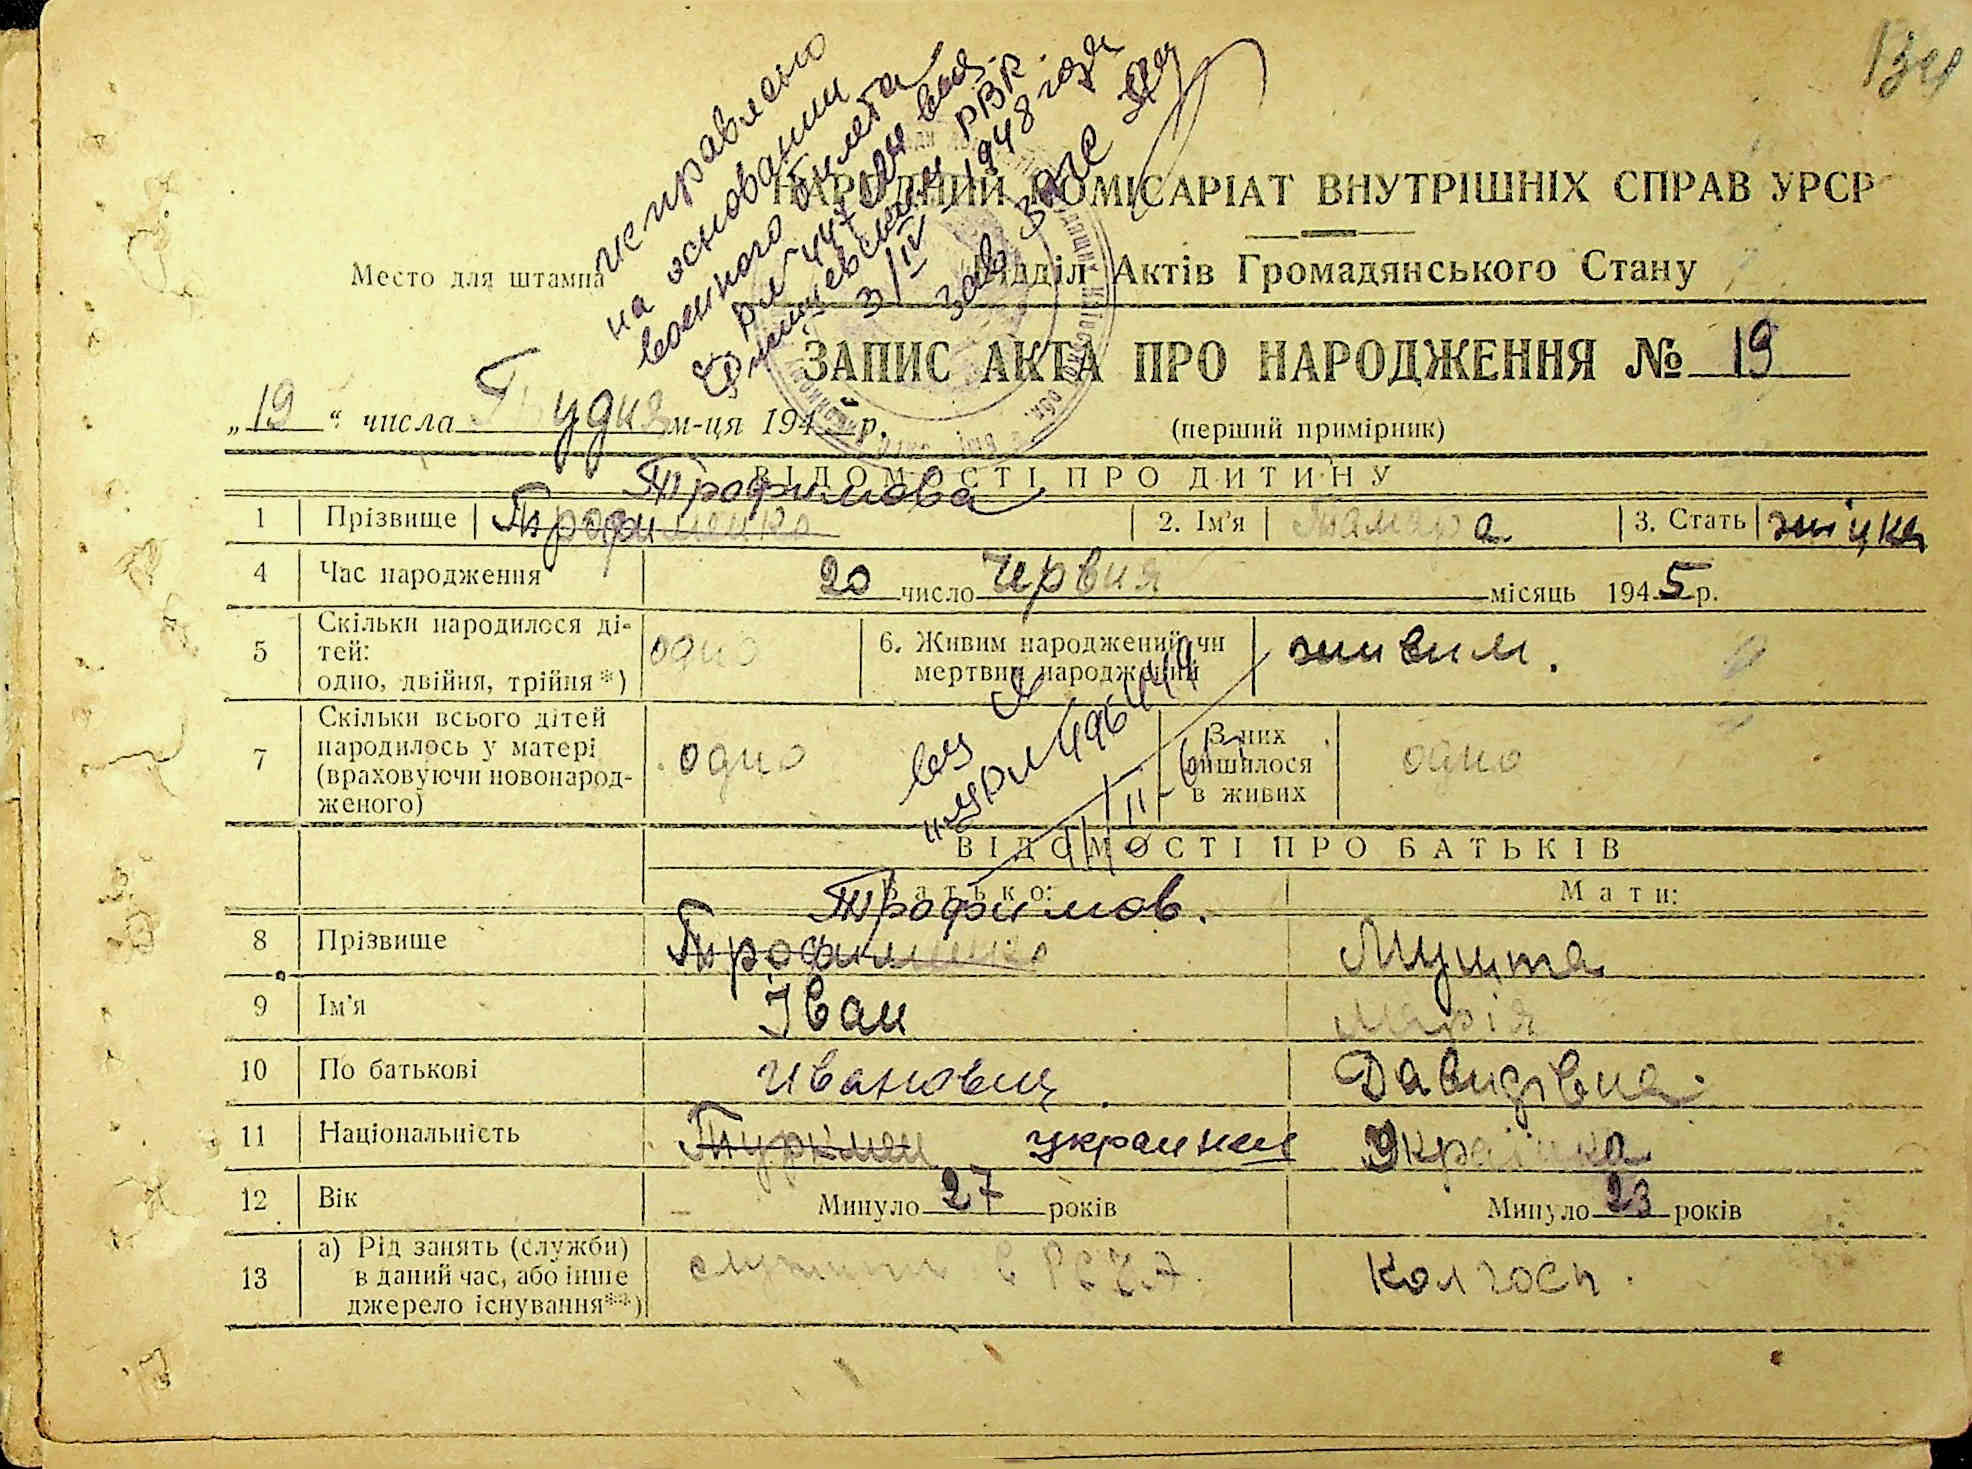 134
исправлено
на основании
военного билета
РВК
3/IV 1948 года
зав ЗАГС
НАРОДНИЙ КОМІСАРІАТ ВНУТРІШНІХ СПРАВ УРСР
Место для штампа
Відділ Актів Громадянського Стану
ЗАПИС АКТА ПРО НАРОДЖЕННЯ № 19
„19“ числа Грудня м-ця 1945 р.
(перший примірник)
ВІДОМОСТІ ПРО ДИТИНУ
Трофимова
1 Прізвище Трофименко 2. Ім'я Тамара 3. Стать жіцка
4 Час народження 20 число Червня місяць 1945 р.
5 Скільки народилося ді-
тей:
одно, двійня, трійня*) одно 6. Живим народжений чи
мертвим народжений живим.
7 Скільки всього дітей
народилось у матері
(враховуючи новонарод-
женого) одно З них
лишилося
в живих одно
ВІДОМОСТІ ПРО БАТЬКІВ
Батько: Мати:
Трофимов.
8 Прізвище Трофименко Мушта
9 Ім'я Іван Марія
10 По батькові Иванович Давидівна.
11 Національність Туркмен украинец Українка
12 Вік Минуло 27 років Минуло 23 років
13 а) Рід занять (служби)
в даний час, або інше
джерело існування**) служить в РСЧА. Колгосп.